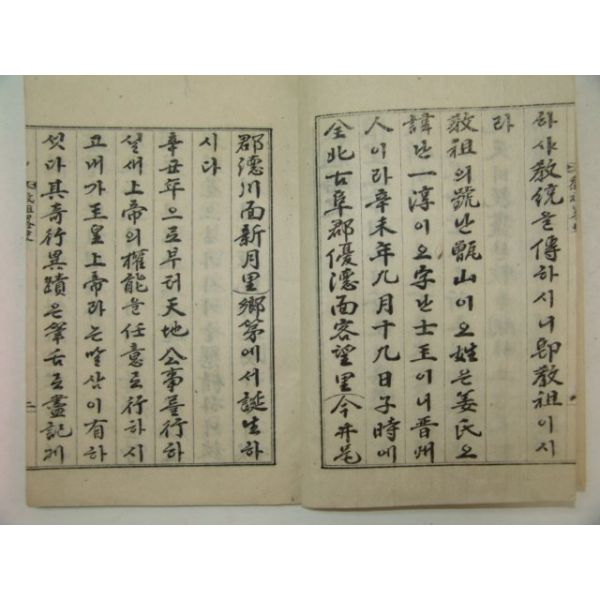 하사敎統을傳하시니卽敎祖이시
라
敎祖의號난甑山이오姓은姜氏오
諱난一淳이오字난士玉이니晋州
人이라辛未年九月十九日子時에
全北古阜郡優德面客望里(今井邑
郡德川面新月里)鄕第에서誕生하
시다
辛丑年으로부터天地公事를行하
실새上帝의權能을任意로行하시
고내가玉皇上帝라는말삼이有하
섯다其奇行異蹟은筆舌로盡記키